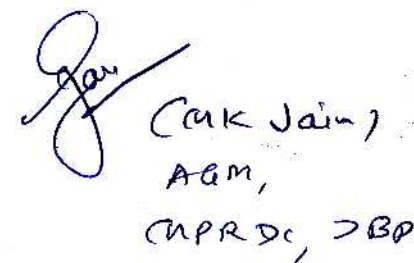 (MK Jain)
AGM,
MPRDC, JBP